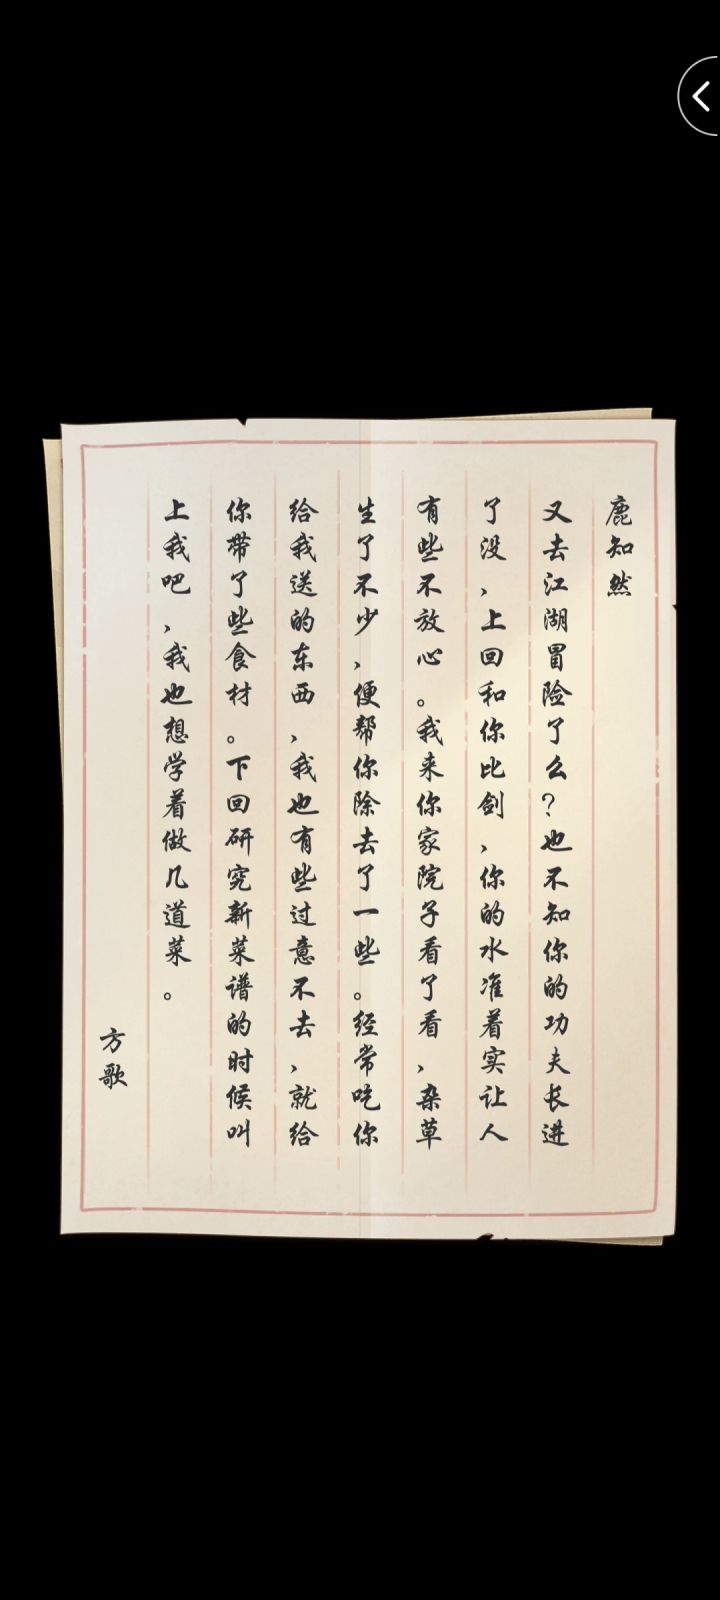 鹿知然
又去江湖冒险了么？也不知你的功夫长进
了没，上回和你比剑，你的水准着实让人
有些不放心。我来你家院子看了看，杂草
生了不少，便帮你除去了一些。经常吃你
给我送的东西，我也有些过意不去，就给
你带了些食材。下回研究新菜谱的时候叫
上我吧，我也想学着做几道菜。
方歌